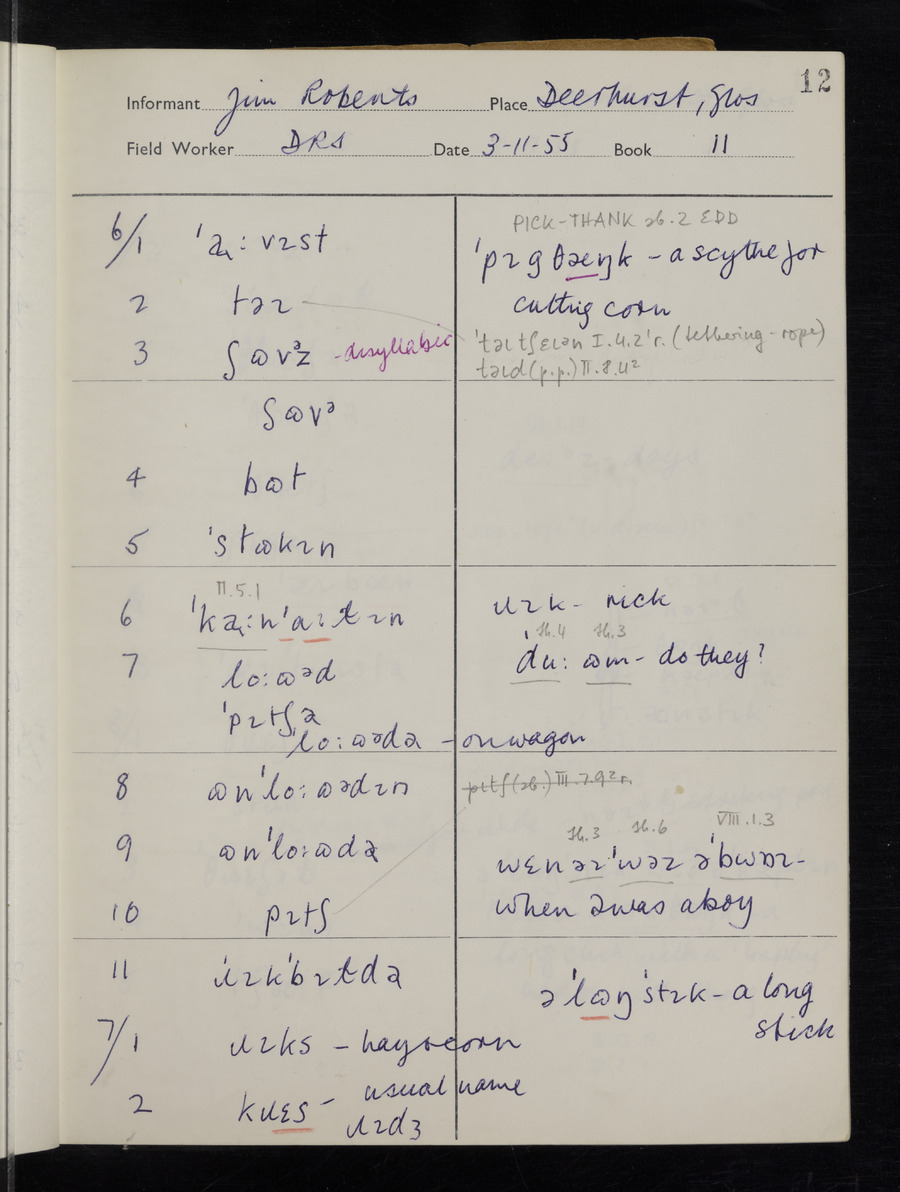 12
Informant Jim Roberts Place Deerhurst, Glos
Field Worker DRS Date 3-11-55 Book 11
6/1 'ɑ̨ː vɪst
2 təɪ
3 ʃɷvᵊz - disyllabic
ʃɷvᵊ
4 bɷt
5 'stɷkɪn
II.5.1
6
7 loːɷᵊd
'pɪtʃə
loːɷədə - on wagon
8 ɷn'loːɷədɪn
9 ɷn'loːɷdə
10 pɪtʃ
11 ɹɪk'bɪtdə
7/1 ɹɪks - hay or corn
2 kɹɛs - usual name
ɹɪdʒ
PICK-THANK sb. 2 EDD
'pɪgθæŋk - a scythe for
cutting corn
'təɪtʃɛɪən I.4.2'r. (tethering-rope)
təɪd (p.p.) II.8.4²
ɹɪk - rick
sh.4 sh.3
'duː ɷm - do they?
pɪtʃ (sb.) III.7.9²r.
sh.3 sh.6 VIII.1.3
wɛn əɪ 'wəz ə'bwɒɪ -
when I was a boy
ə'lɷŋ 'stɪk - a long
stick